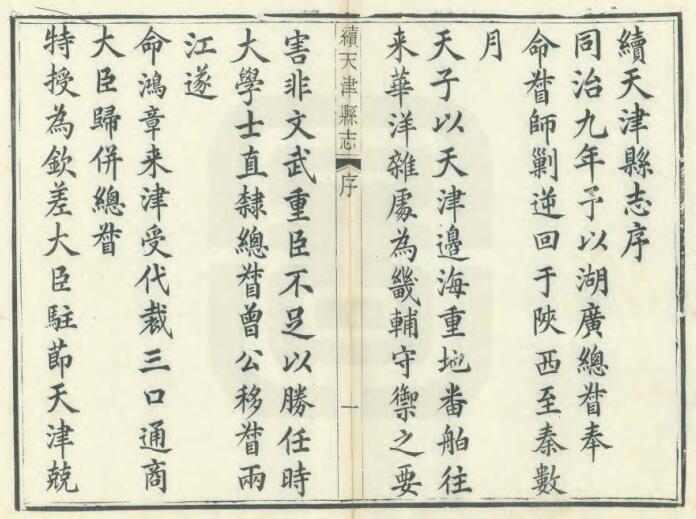 續天津縣志序
同治九年予以湖廣總督奉
命督師剿逆回于陝西至秦數
月
天子以天津邊海重地番舶往
来華洋雜處為畿輔守禦之要
續天津縣志
序
一
害非文武重臣不足以勝任時
大學士直隸總督曾公移督兩
江遂
命鴻章来津受代裁三口通商
大臣歸併總督
特授為欽差大臣駐節天津兢